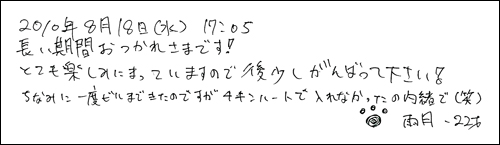 2010年8月18日(水) 17:05
長い期間おつかれさまです!
とても楽しみにまっていますので後少しがんばって下さい!
ちなみに一度ビルまできたのですがチキンハートで入れなかったの内緒で(笑)
雨月 -22才